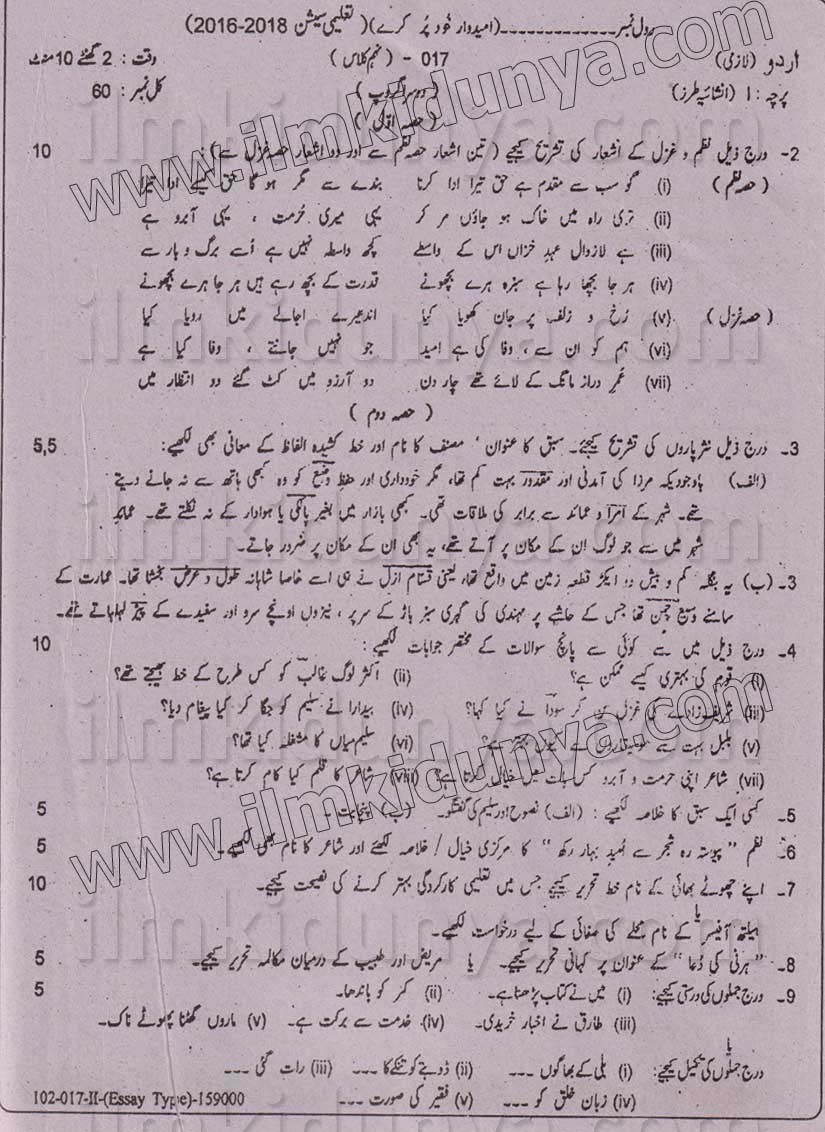 رول نمبر ------------- (امیدوار خود پُر کرے) ( تعلیمی سیشن 2018-2016)
اردو (لازمی) 017 - (نہم کلاس) وقت : 2 گھنٹے 10 منٹ
پرچہ : I (انشائیہ طرز) ( دوسرا گروپ ) کل نمبر : 60
( حصہ اول )
2- درج ذیل نظم و غزل کے اشعار کی تشریح کیجیے ( تین اشعار حصہ نظم سے اور دو اشعار حصہ غزل سے) : 10
( حصہ نظم ) (i) گو سب سے مقدم ہے حق تیرا ادا کرنا بندے سے مگر ہو گا حق کیسے ادا تیرا
(ii) تری راہ میں خاک ہو جاؤں مر کر یہی میری حُرمت ، یہی آبرو ہے
(iii) ہے لازوال عہدِ خزاں اس کے واسطے کچھ واسطہ نہیں ہے اُسے برگ و بار سے
(iv) ہر جا بچھا رہا ہے سبزہ ہرے بچھونے قدرت کے بچھ رہے ہیں ہر جا ہرے بچھونے
( حصہ غزل ) (v) رُخ و زلف پر جان کھویا کیا اندھیرے اجالے میں رویا کیا
(vi) ہم کو ان سے ، وفا کی ہے امید جو نہیں جانتے ، وفا کیا ہے
(vii) عُمرِ دراز مانگ کے لائے تھے چار دن دو آرزو میں کٹ گئے دو انتظار میں
( حصہ دوم )
3- درج ذیل نثر پاروں کی تشریح کیجئے۔ سبق کا عنوان ‘ مصنف کا نام اور خط کشیدہ الفاظ کے معانی بھی لکھیے: 5,5
(الف) باوجودیکہ مرزا کی آمدنی اور مقدور بہت کم تھا، مگر خودداری اور حفظِ وضع کو وہ کبھی ہاتھ سے نہ جانے دیتے
تھے۔ شہر کے اُمرا و عمائد سے برابر کی ملاقات تھی۔ کبھی بازار میں بغیر پالکی یا ہوادار کے نہ نکلتے تھے۔ عمائدِ
شہر میں سے جو لوگ ان کے مکان پر آتے تھے، یہ بھی ان کے مکان پر ضرور جاتے۔
3- (ب) یہ بنگلہ کم و بیش دو ایکڑ قطعہ زمین میں واقع تھا، یعنی قسّامِ ازل نے ہی اسے خاصا شاہانہ طول و عرض بخشا تھا۔ عمارت کے
سامنے وسیع چمن تھا جس کے حاشیے پر مہندی کی گہری سبز باڑ کے سر پر ، نیزوں اونچے سرو اور سفیدے کے پیڑ لہلہاتے تھے۔
4- درج ذیل میں سے کوئی سے پانچ سوالات کے مختصر جوابات لکھیے : 10
(i) قوم کی بہتری کیسے ممکن ہے؟ (ii) اکثر لوگ غالب کو کس طرح کے خط بھیجتے تھے؟
(iii) شریف زادے کی غزل سن کر سودا نے کیا کہا؟ (iv) بیدارا نے سلیم کو جگا کر کیا پیغام دیا؟
(v) بلبل بہت سے (vi) سلیم میاں کا مشغلہ کیا تھا؟
(vii) شاعر اپنی حرمت و آبرو کس بات میں خیال کرتا ہے؟ (viii) شاعر کا قلم کیا کام کرتا ہے؟
5- کسی ایک سبق کا خلاصہ لکھیے : (الف) نصوح اور سلیم کی گفتگو۔ (ب) پنچایت ۔ 5
6- نظم " پیوستہ رہ شجر سے اُمیدِ بہار رکھ " کا مرکزی خیال / خلاصہ لکھئے اور شاعر کا نام بھی لکھیے۔ 5
7- اپنے چھوٹے بھائی کے نام خط تحریر کیجیے جس میں تعلیمی کارکردگی بہتر کرنے کی نصیحت کیجیے۔ 10
یا
ہیلتھ آفیسر کے نام محلے کی صفائی کے لیے درخواست لکھیے۔
8- " ہرنی کی دُعا " کے عنوان پر کہانی تحریر کیجیے۔ یا مریض اور طبیب کے درمیان مکالمہ تحریر کیجیے۔ 5
9- درج جملوں کی درستی کیجیے: (i) میں نے کتاب پڑھتا ہے۔ (ii) کمر کو باندھا۔ 5
(iii) طارق نے اخبار خریدی۔ (iv) خدمت سے برکت ہے۔ (v) ماروں گھٹنا پھوٹے ناک۔
یا
درج جملوں کی تکمیل کیجیے: (i) بلی کے بھاگوں --- (ii) ڈوبتے کو تنکے کا --- (iii) رات گئی ---
(iv) زبانِ خلق کو --- (v) فقیر کی صورت ---
102-017-II-(Essay Type)-159000
www.ilmkidunya.com
www.ilmkidunya.com
ilmkidunya.com
ilmkidunya.com
ilmkidunya.com
ilmkidunya.com
ilmkidunya.com